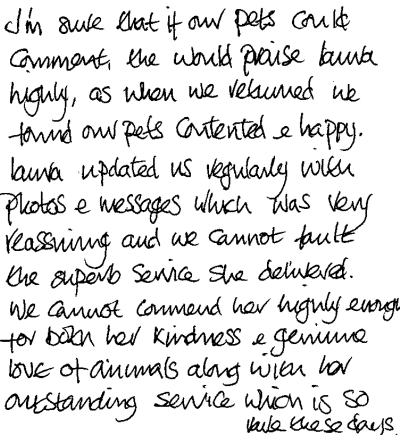 I'm sure that if our pets could
comment, the would praise Laura
highly, as when we returned we
found our pets contented & happy.
Laura updated us regularly with
photos & messages which was very
reassuring and we cannot fault
the superb service she delivered.
We cannot commend her highly enough
for both her kindness & genuine
love of animals along with her
outstanding service which is so
rare these days.